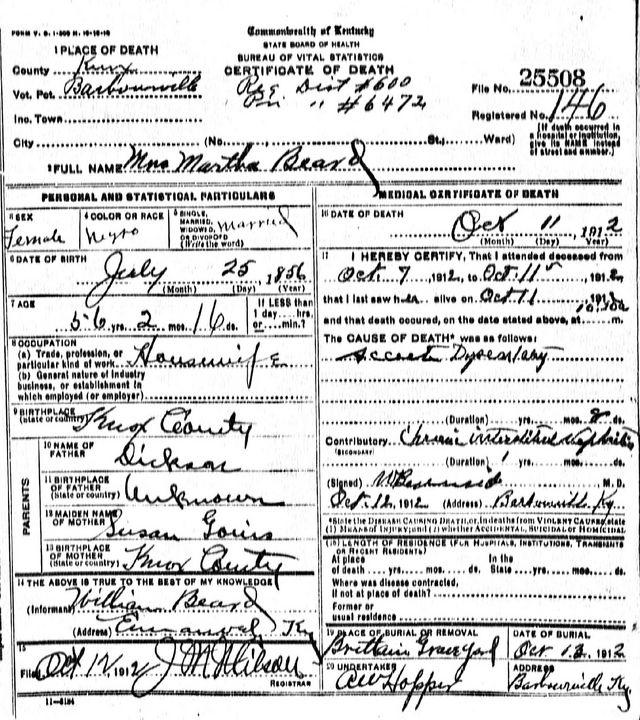 FORM V. S. 1-
Commonwealth of Kentucky
STATE BOARD OF HEALTH
BUREAU OF VITAL STATISTICS
CERTIFICATE OF DEATH
1 PLACE OF DEATH
County Knox
Vot. Pct. Barbourville
Inc. Town
City (No. St., Ward)
Reg Dist #600
Pri " #6472
File No. 25508
Registered No. 146
[If death occurred in a hospital or institution, give its NAME instead of street and number.]
2 FULL NAME Mrs Martha Beard
PERSONAL AND STATISTICAL PARTICULARS
3 SEX
Female
4 COLOR OR RACE
Negro
5 SINGLE, MARRIED, WIDOWED, OR DIVORCED (Write the word)
Married
6 DATE OF BIRTH
July 25, 1856
(Month) (Day) (Year)
7 AGE
56 yrs. 2 mos. 16 ds.
If LESS than 1 day....hrs. or....min.?
8 OCCUPATION
(a) Trade, profession, or particular kind of work Housewife
(b) General nature of industry business, or establishment in which employed (or employer)
9 BIRTHPLACE
(State or country) Knox County
PARENTS
10 NAME OF FATHER
Dickson
11 BIRTHPLACE OF FATHER
(State or country) Unknown
12 MAIDEN NAME OF MOTHER
Susan
13 BIRTHPLACE OF MOTHER
(State or country) Knox County
14 THE ABOVE IS TRUE TO THE BEST OF MY KNOWLEDGE
(Informant William Beard
(Address) Emanuel Ky
15
Filed Oct 12, 1912 J M Wilson
REGISTRAR
MEDICAL CERTIFICATE OF DEATH
16 DATE OF DEATH
Oct 11, 1912
(Month) (Day) (Year)
17 I HEREBY CERTIFY, That I attended deceased from
Oct 7, 1912, to Oct 11, 1912,
that I last saw her alive on Oct 11, 1912
and that death occured, on the date stated above, at m.
The CAUSE OF DEATH* was as follows:
Dysentary
(Duration) yrs. mos. 8 ds.
Contributory Chronic interstitial Nephritis
(SECONDARY)
(Duration) yrs. mos. ds.
(Signed) M.D.
Oct 12, 1912 (Address) Barbourville Ky.
*State the DISEASE CAUSING DEATH, or, in deaths from VIOLENT CAUSES, state (1) MEANS OF INJURY; and (2) whether ACCIDENTAL, SUICIDAL or HOMICIDAL
18 LENGTH OF RESIDENCE (FOR HOSPITALS, INSTITUTIONS, TRANSIENTS OR RECENT RESIDENTS)
At place of death yrs. mos. ds. In the State yrs. mos. ds.
Where was disease contracted, if not at place of death?
Former or usual residence
19 PLACE OF BURIAL OR REMOVAL
Brittain Graveyard
DATE OF BURIAL
Oct 12, 1912
20 UNDERTAKER
Hopper
ADDRESS
Barbourville Ky
11-8184